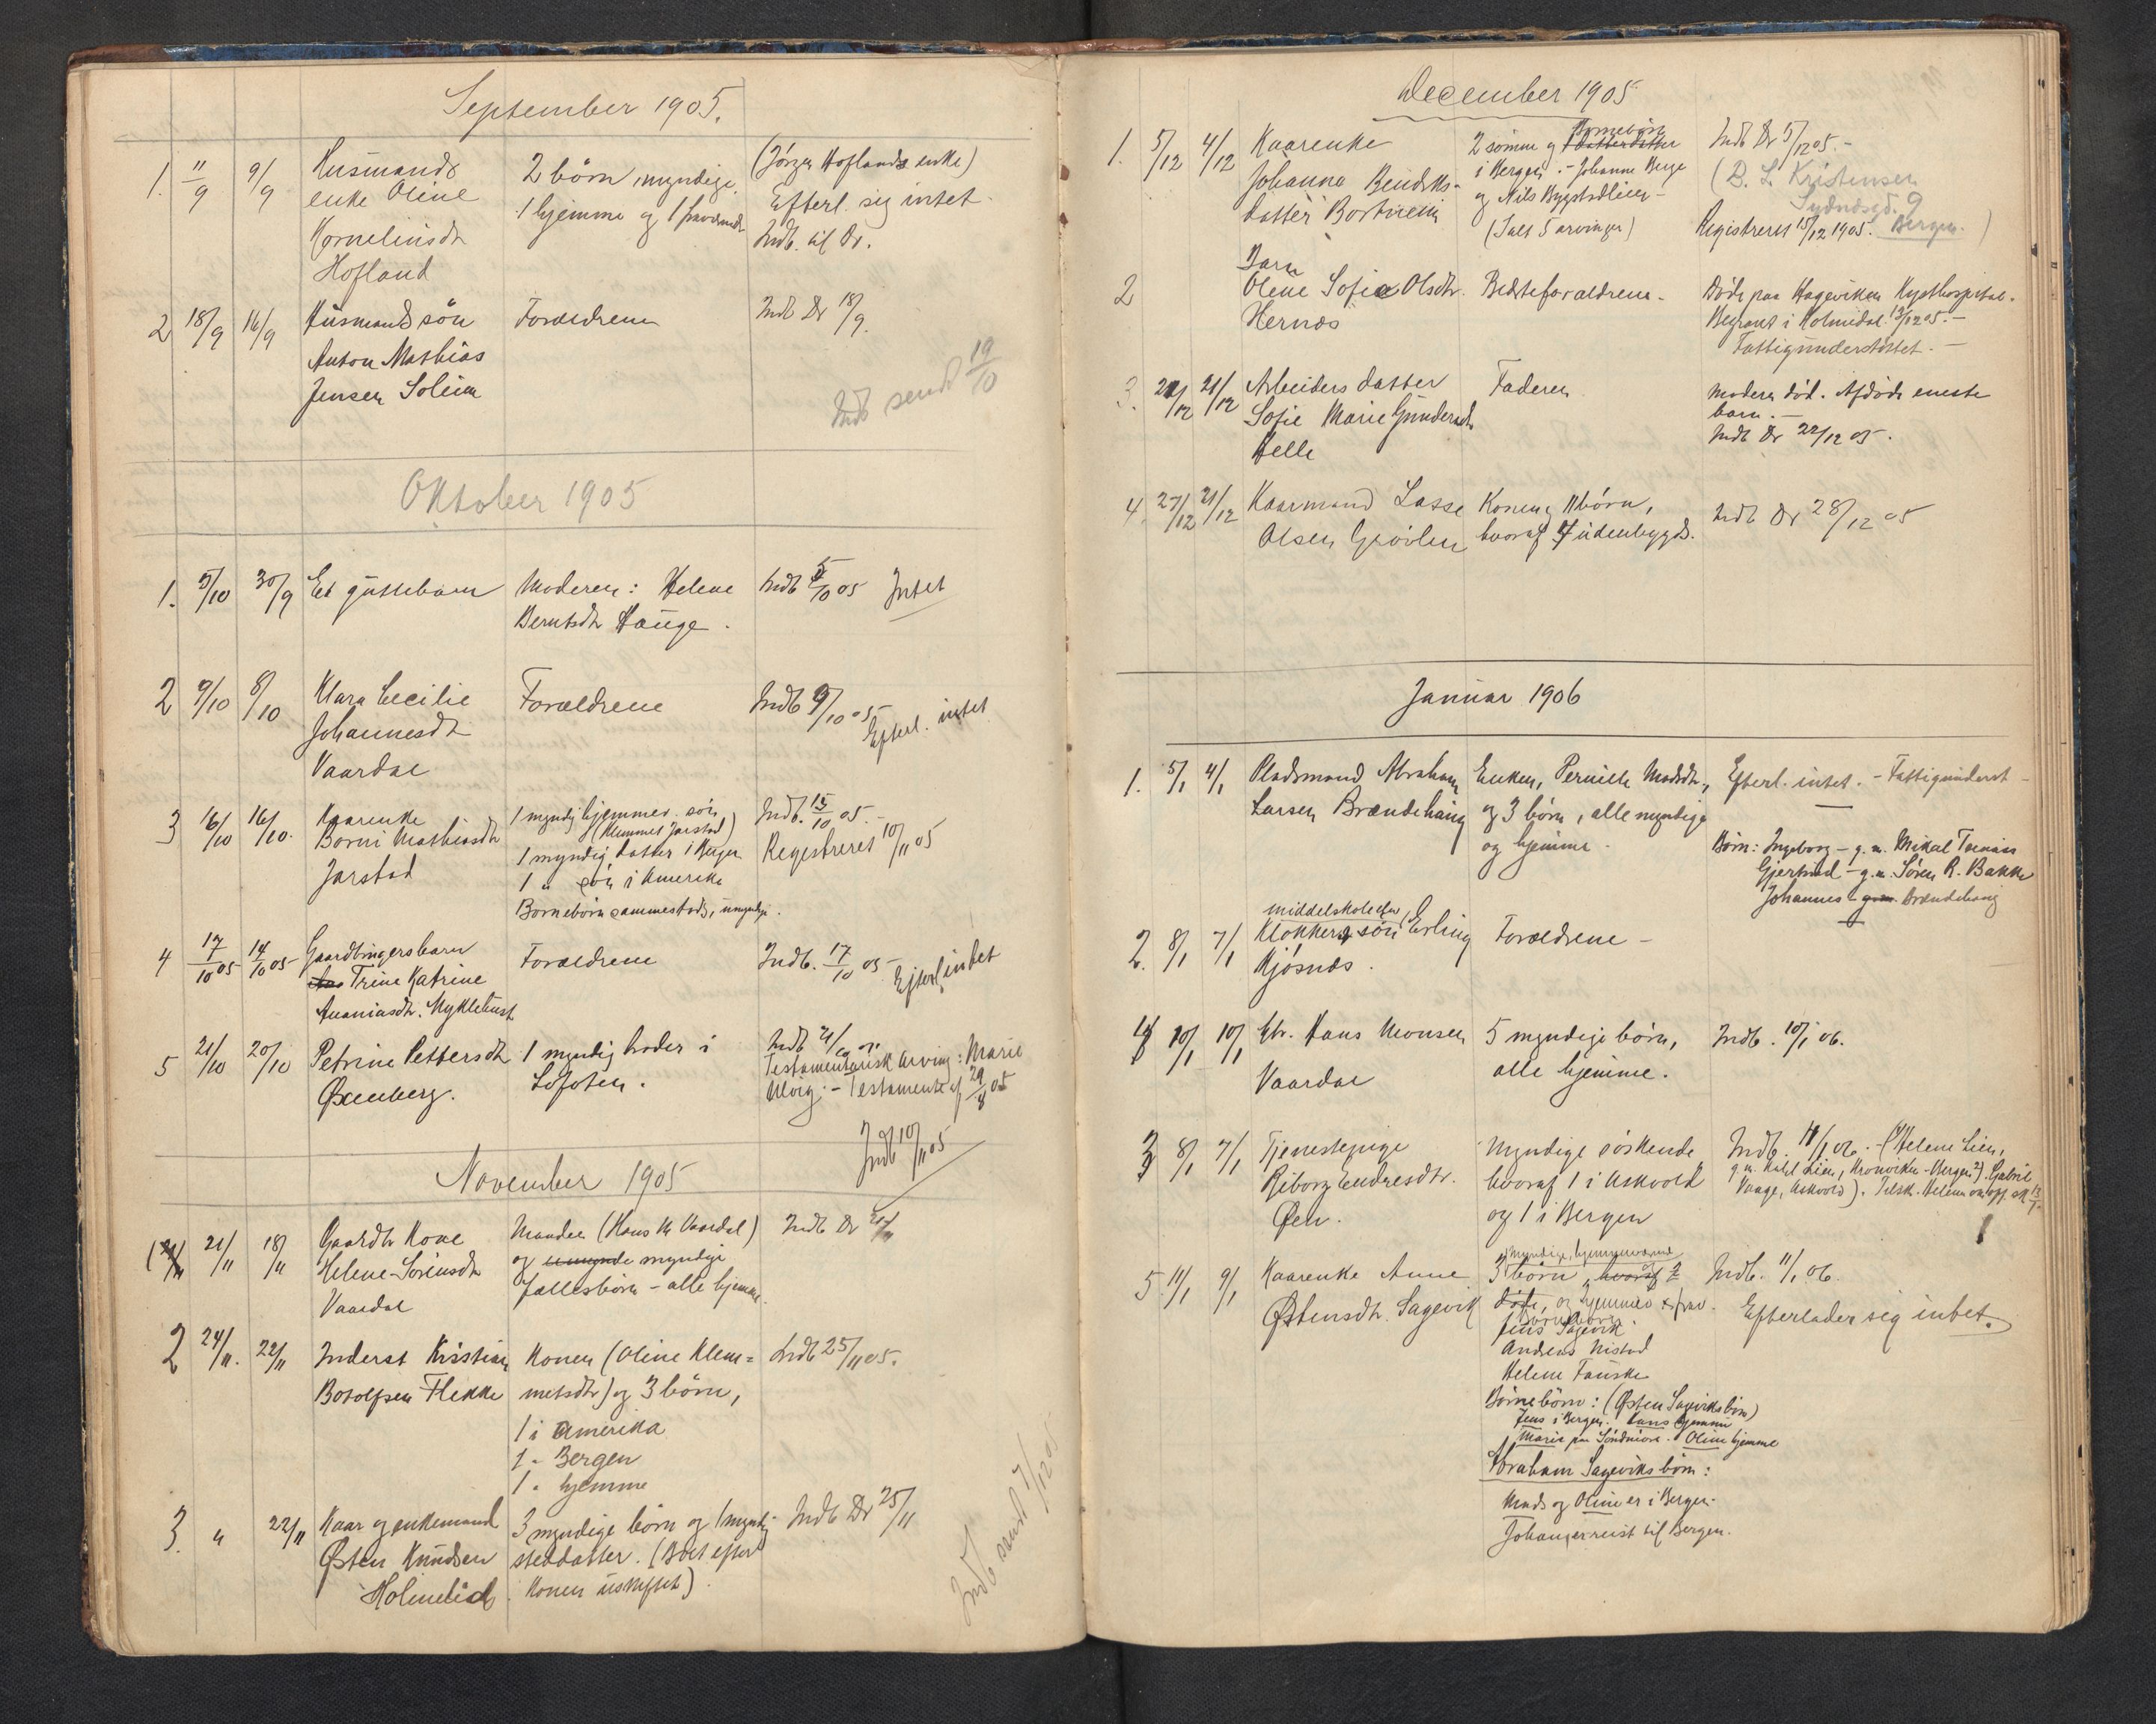 September 1905.
1. 11/9 9/9 Husmands enke Oline Kornelinsdtr Hofland
2 börn, myndige. 1 hjemme og 1 fraværende
(Jörgen Hoflands enke)
Efterl. sig intet.
Indb. til Dr.
2 18/9 16/9 Husmandssön
Anton Mathias
Jensen Soleim
Forældrene
Indb Dr 18/9.
Indb sendt 19/10
Oktober 1905
1. 5/10 30/9 Et guttebarn
Moderen: Helene
Berntsdtr Hauge.
Indb 5/10 05 Intet
2 9/10 8/10 Klara Cecilie
Johannesdtr
Vaardal
Forældrene
Indb 9/10 05
Efterl. intet
3 16/10 16/10. Kaarenke
Borni Mathiasdtr
Jarstad
1 myndig hjemmev. sön
(Klemmet Jarstad)
1 myndig datter i Bergen
1 " sön i Amerika
Bornebörn sammesteds, umyndige.
Indb. 15/10 05.-
Registreret 10/11 05
4 17/10 05 14/10 05 Gaardbrugersbarn
Trine Katrine
Ananiasdtr. Myklebust
Forældrene
Indb. 17/10 05
Efterl. intet
5 21/10 20/10 Petrine Pettersdtr
Øxenberg.
1 myndig broder i
Lofoten.
Indb 21/10 05.
Testamentarisk Arving: Marie
Ulvig. - Testamente af 29/8 05
Indb 10/11 05
November 1905
21/11 18/11 Gaardbr Kone
Helene Sörensdtr
Vaardal
Manden (Hans M Vaardal)
og myndige
fællesbörn - alle hjemme.
Indb Dr 21/11
2 24/11. 22/11 Inderst Kristian
Botolfsen Flekke
Konen (Oline Klem=
metsdtr) og 3 börn,
1 i Amerika
1 - Bergen
1 - hjemme
Indb 25/11 05.
3. " 22/11 Kaar og enkemand
Østen Knudsen
Holmelid
3 myndige börn og 1 myndig
steddatter. (Boet efter
Konen uskiftet).
Indb Dr 25/11
Indb sendt 7/12 05
December 1905
1. 5/12 4/12 Kaarenke
Johanna Bendiks-
datter Bortheim
2 sönner og 1 datterdatter
Bornebörn
i Bergen. - Johanne Berge
og Nils Bygstadlien -
(Ialt 5 arvinger)
Indb Dr 5/12 05.-
(B. L. Kristensen
9
Bergen.)
Registreret 15/12 1905.
2 Barn
Oline Sofie Olsdtr.
Hernæs
Bedsteforældrene.
Döde paa Hageviken Kysthospital.
Begravet i Holmedal 13/12 05.-
Fattigunderstöttet.-
3. 22/12 21/12 Arbeiders datter
Sofie Marie Gundersdtr
Helle
Faderen
Moderen död. Afdöde eneste
barn.-
Indb Dr 22/12 05.
4. 27/12 21/12 Kaarmand Lasse
Olsen Grövlen
Konen, 11 börn,
hvoraf 7 udenbygds.
Indb Dr 28/12 05
Januar 1906
1. 5/1 4/1 Pladsmand Abraham
Larsen Brændehaug
Enken, Pernille Madsdtr,
og 3 börn, alle myndige
og hjemme.
Efterl. intet. - Fattigunderst -
Börn: Ingeborg - g.m. Mikal
Gjertrud - g.m. Sören R. Bakke
Johannes - g.m. Brændehaug
2. 8/1 7/1 middelskoleelev,
Klokkersön Erling
Kjösnæs.
Forældrene -
4 10/1 10/1 Gbr. Hans Monsen
Vaardal
5 myndige börn,
alle hjemme.
Indb. 10/1 06.
3 8/1 7/1 Tjenestepige
Riborg Endresdtr.
Øen.
Myndige söskende
hvoraf 1 i Askvold
og 1 i Bergen
Indb. 11/1 06. - (Helene Lien,
g.m. Lien, Kronviken - Bergen?). Gabriel
Vaage, Askvold). Tilsk. Helene om opg.
5. 11/1 9/1 Kaarenke Anne
Østensdtr. Sagevik
myndige, hjemmeværende
3 börn, hvoraf 2
döde, og hjemme
Börnebörn
Jens Sagevik
Andreas Nistad
Helene Fauske
Börnebörn: (Østen Sageviks börn)
Jens i Bergen. Hans hjemme
Marie paa Söndmöre. - Oline hjemme
Abraham Sageviks börn:
Mads og Oline er i Bergen.
Johan er reist til Bergen.
Indb. 11/1 06.
Efterlader sig intet.